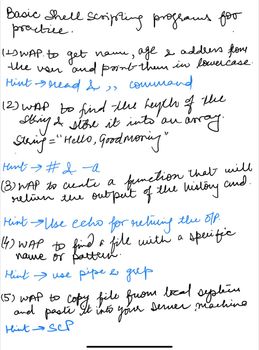 Basic Shell Scripting programs for
practice.
(1) WAP to get name, age & address from
the user and print them in lowercase.
Hint → read & ,, command
(2) WAP to find the length of the
String & store it into an array.
String = "Hello, Good morning"
Hint → # & -a
(3) WAP to create a function that will
return the output of the history cmd.
Hint → Use echo for returing the o/p.
(4) WAP to find a file with a specific
name or pattern.
Hint → use pipe & grep
(5) WAP to copy file from local system
and paste it into your server machine
Hint → SCP